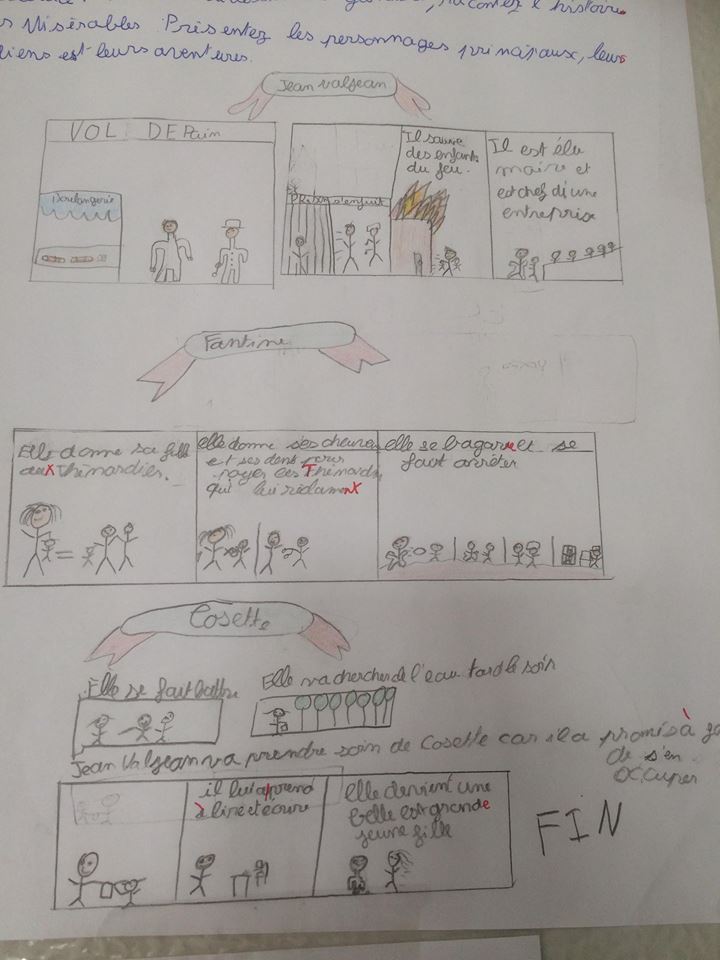 racontez l'histoire
Misérables. Présentez les personnages principaux, leurs
liens est leurs aventures.
Jean valjean
VOL DE Pain
Boulangerie
PRISON s'enfuit
Il sauve
des enfants
du feu.
Il est élu
maire et
est chef d'une
entreprise
Fantine
Elle donne sa fille
aux Thénardier.
elle donne ses cheveux
et ses dents pour
payer les Thénardier
qui lui réclament
elle se bagarre et se
fait arrêter
Cosette
Elle se fait battre
Elle va chercher de l'eau tard le soir
Jean Valjean va prendre soin de Cosette car il a promis à
de s'en
occuper
il lui apprend
à lire et écrire
elle devient une
belle est grande
jeune fille
FIN